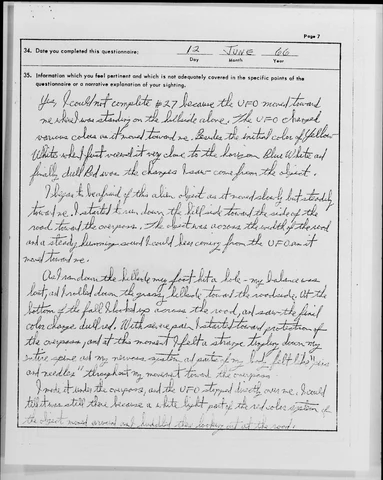 Page 7
34. Date you completed this questionnaire: 12 JUNE 66
Day Month Year
35. Information which you feel pertinent and which is not adequately covered in the specific points of the
questionnaire or a narrative explanation of your sighting.
Yes, I could not complete #27 because the UFO moved toward
me when I was standing on the hillside alone. The UFO changed
various colors as it moved toward me. Besides the initial color of yellow-
White when I first viewed it very close to the horizon Blue White and
finally dull Red were the changes I saw come from the object.
I began to be afraid of this alien object as it moved slowly but steadily
toward me. I started to run down the hillside toward the side of the
road toward the overpass. The object was across the width of the road
and a steady humming sound I could hear coming from the UFO as it
moved toward me.
As I ran down the hillside my foot hit a hole - my balance was
lost, and I rolled down the grassy hillside toward the roadside. At the
bottom of the fall I looked up across the road, and saw the final
color change, dull red. With severe pain I started toward protection of
the overpass, and at this moment I felt a strange tingling down my
entire spine and my nervous system and parts of my body felt like "pins
and needles" throughout my movement toward the overpass.
I made it under the overpass, and the UFO stopped directly over me. I could
tell it was still there because a white light part of the red color system of
the object moved around and